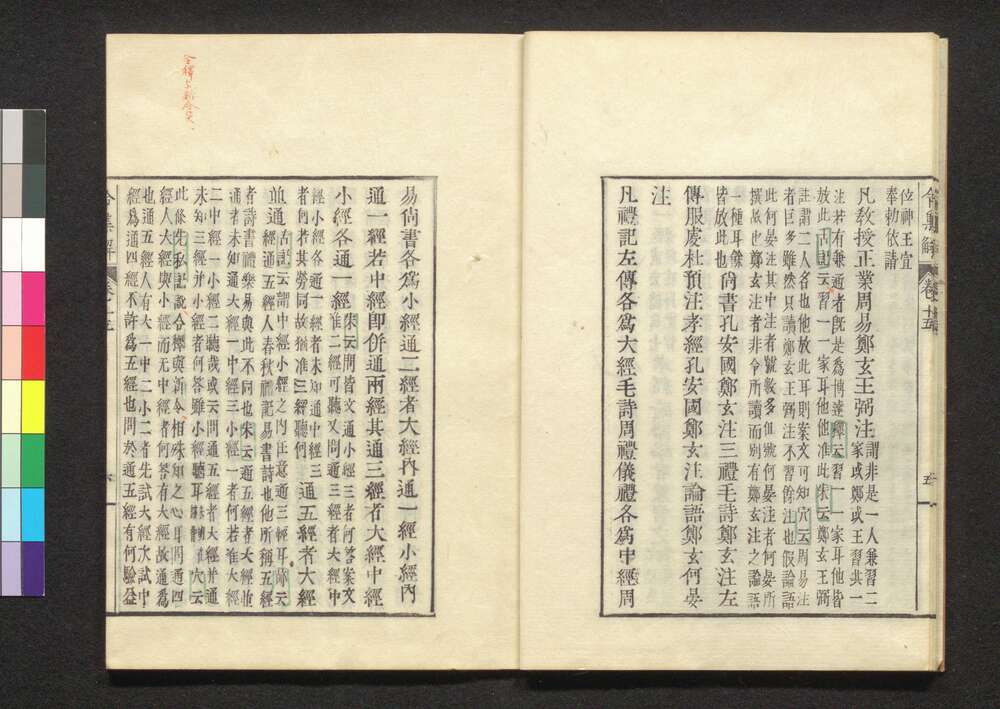 令集解 卷十五 五
位神王宜
奉勅依請
凡教授正業周易鄭玄王弼注
謂非是一人兼習二
家或鄭或王習其一
注若有兼通者既是爲博達釋云習一一家耳他皆
放此古記云習一一家耳他他准此朱云鄭玄王弼
註謂二人各也他放此耳則案文可知穴云周易注
者巨多雖然只讀鄭玄王弼注不習餘注也假論語
此何晏注其中注者號數多但號何晏注者何晏所
撰故也鄭玄注者非今所讀而別有鄭玄注之論語
一種耳儀
皆放此也
尚書孔安國鄭玄注三禮毛詩鄭玄注左
傳服虔杜預注孝經孔安國鄭玄注論語鄭玄何晏
注
凡禮記左傳各爲大經毛詩周禮儀禮各爲中經周
易尚書各爲小經通二經者大經内通一經小經内
通一經若中經即併通兩經其通三經者大經中經
小經各通一經
朱云問皆文通小經三者何答案文
准二經可聽又問通三經者大經中
經小經各通一經者未知通中經三
者何若其勞同故猶准三經聽何
通五經者大經
並通
古記云謂中經小經之内任意通三經耳跡云
經通五經人春秋禮記易書詩也他所稱五經
者詩書禮樂易與此不同也朱云通五經者大經並
通者未知通大經一中經三小經一者何若准大經
二中經一小經二聽哉或云問通五經者大經并通
未知三經并小經者何答雖小經聽耳 穴云
此條先私記説令釋與新令相殊知之心耳問通四
經人大經與小經而无中經者何答有大經故通爲
也通五經人有大一中二小二者先試大經次試中
經爲通四經不許爲五經也問於通五經有何驗益
令集解 卷十五